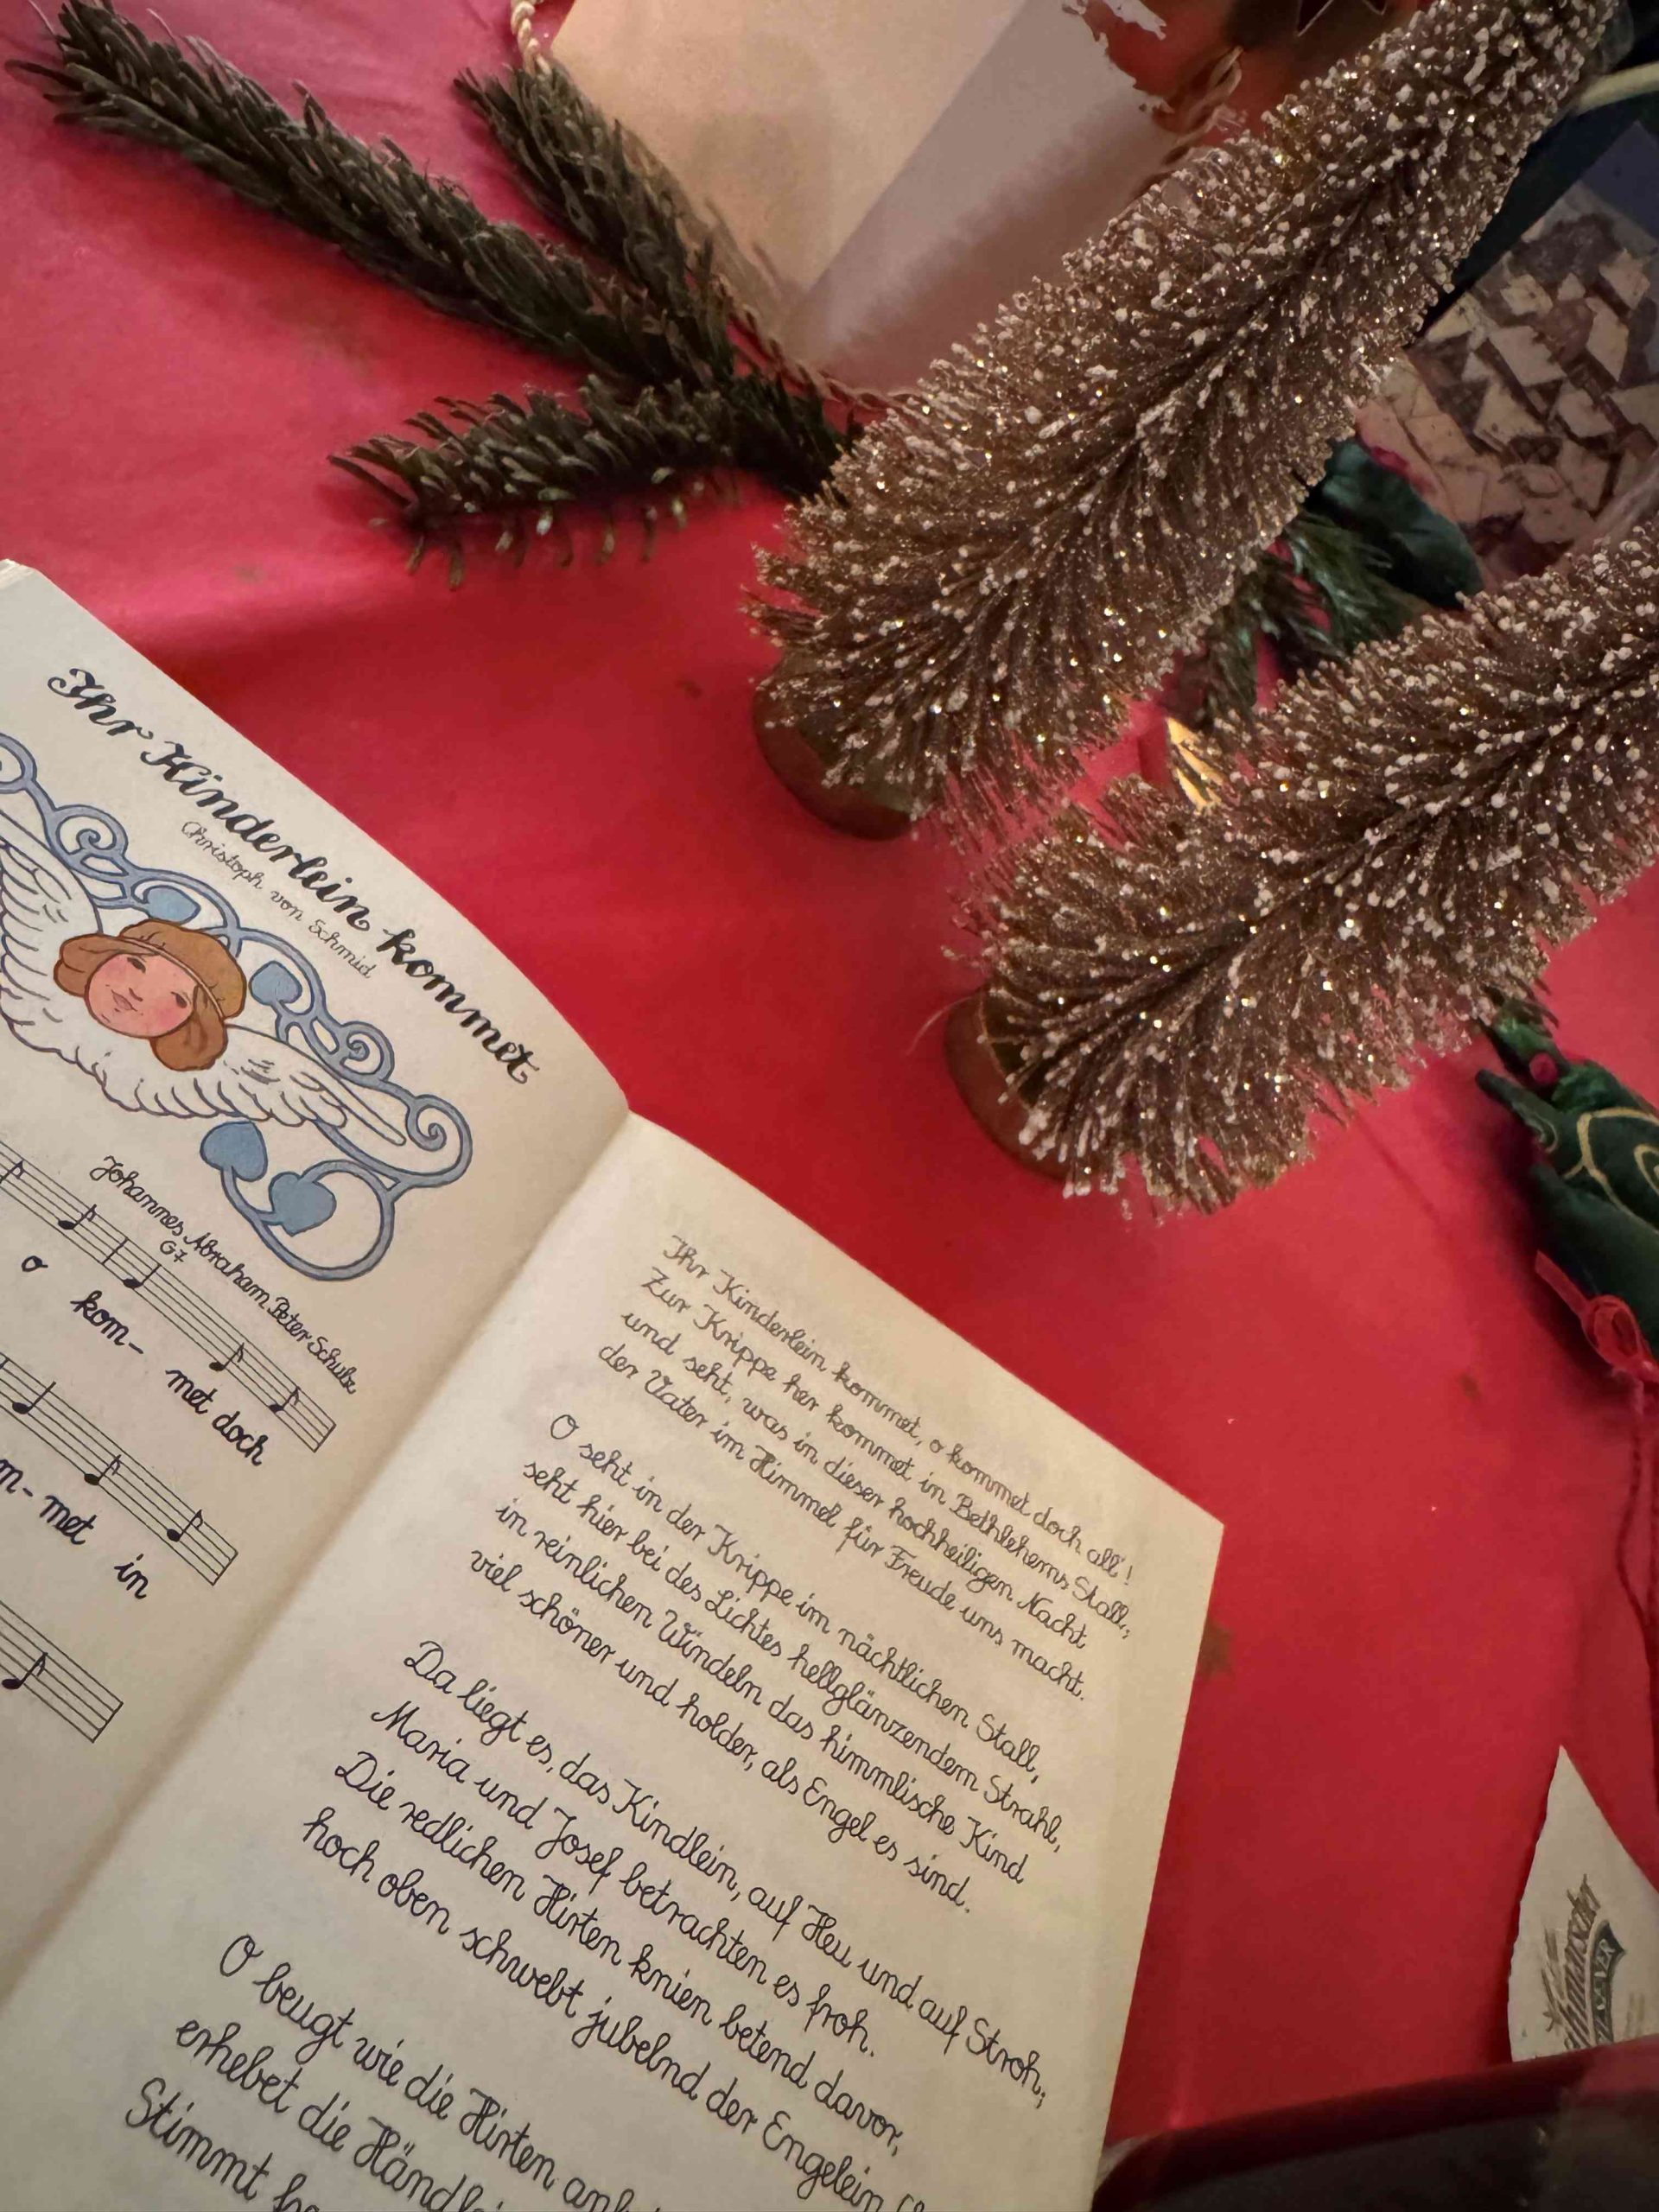 Ihr Kinderlein kommet
Christoph von Schmid
Johannes Abraham Peter Schulz
G7
o kom- met doch
met in
Ihr Kinderlein kommet, o kommet doch all'!
Zur Krippe her kommet in Bethlehems Stall,
und seht, was in dieser hochheiligen Nacht
der Vater im Himmel für Freude uns macht.
O seht in der Krippe im nächtlichen Stall,
seht hier bei des Lichtes hellglänzendem Strahl,
in reinlichen Windeln das himmlische Kind
viel schöner und holder, als Engel es sind.
Da liegt es, das Kindlein, auf Heu und auf Stroh;
Maria und Josef betrachten es froh.
Die redlichen Hirten knien betend davor,
hoch oben schwebt jubelnd der Engelein
O beugt wie die Hirten
erhebet die
Stimmt